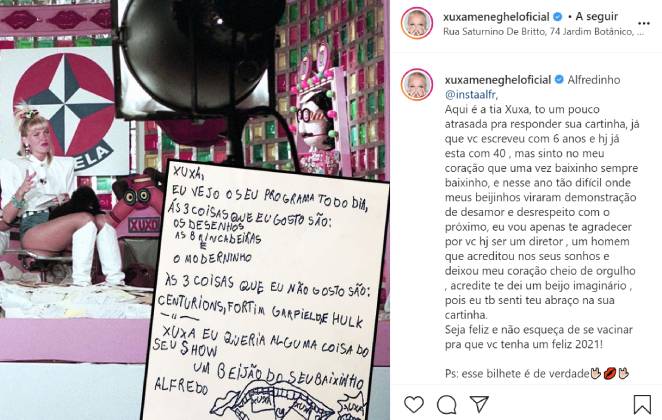 ELA
XUXA,
EU VEJO O SEU PROGRAMA TODO DIA,
ÁS 3 COISAS QUE EU GOSTO SÃO:
OS DESENHOS
AS BRINCADEIRAS
E
O MODERNINHO
ÀS 3 COISAS QUE EU NÃO GOSTO SÃO:
CENTURIONS, FORTIM GARFIELD E HULK
XUXA EU QUERIA ALGUMA COISA DO
SEU SHOW
UM BEIJÃO DO SEU BAIXINHO
ALFREDO
XUXA
XUXA
xuxamenegheloficial • A seguir
Rua Saturnino De Britto, 74 Jardim Botânico, ...
xuxamenegheloficial Alfredinho
@instaalfr,
Aqui é a tia Xuxa, to um pouco
atrasada pra responder sua cartinha, já
que vc escreveu com 6 anos e hj já
esta com 40 , mas sinto no meu
coração que uma vez baixinho sempre
baixinho, e nesse ano tão difícil onde
meus beijinhos viraram demonstração
de desamor e desrespeito com o
próximo, eu vou apenas te agradecer
por vc hj ser um diretor , um homem
que acreditou nos seus sonhos e
deixou meu coração cheio de orgulho
, acredite te dei um beijo imaginário ,
pois eu tb senti teu abraço na sua
cartinha.
Seja feliz e não esqueça de se vacinar
pra que vc tenha um feliz 2021!
Ps: esse bilhete é de verdade